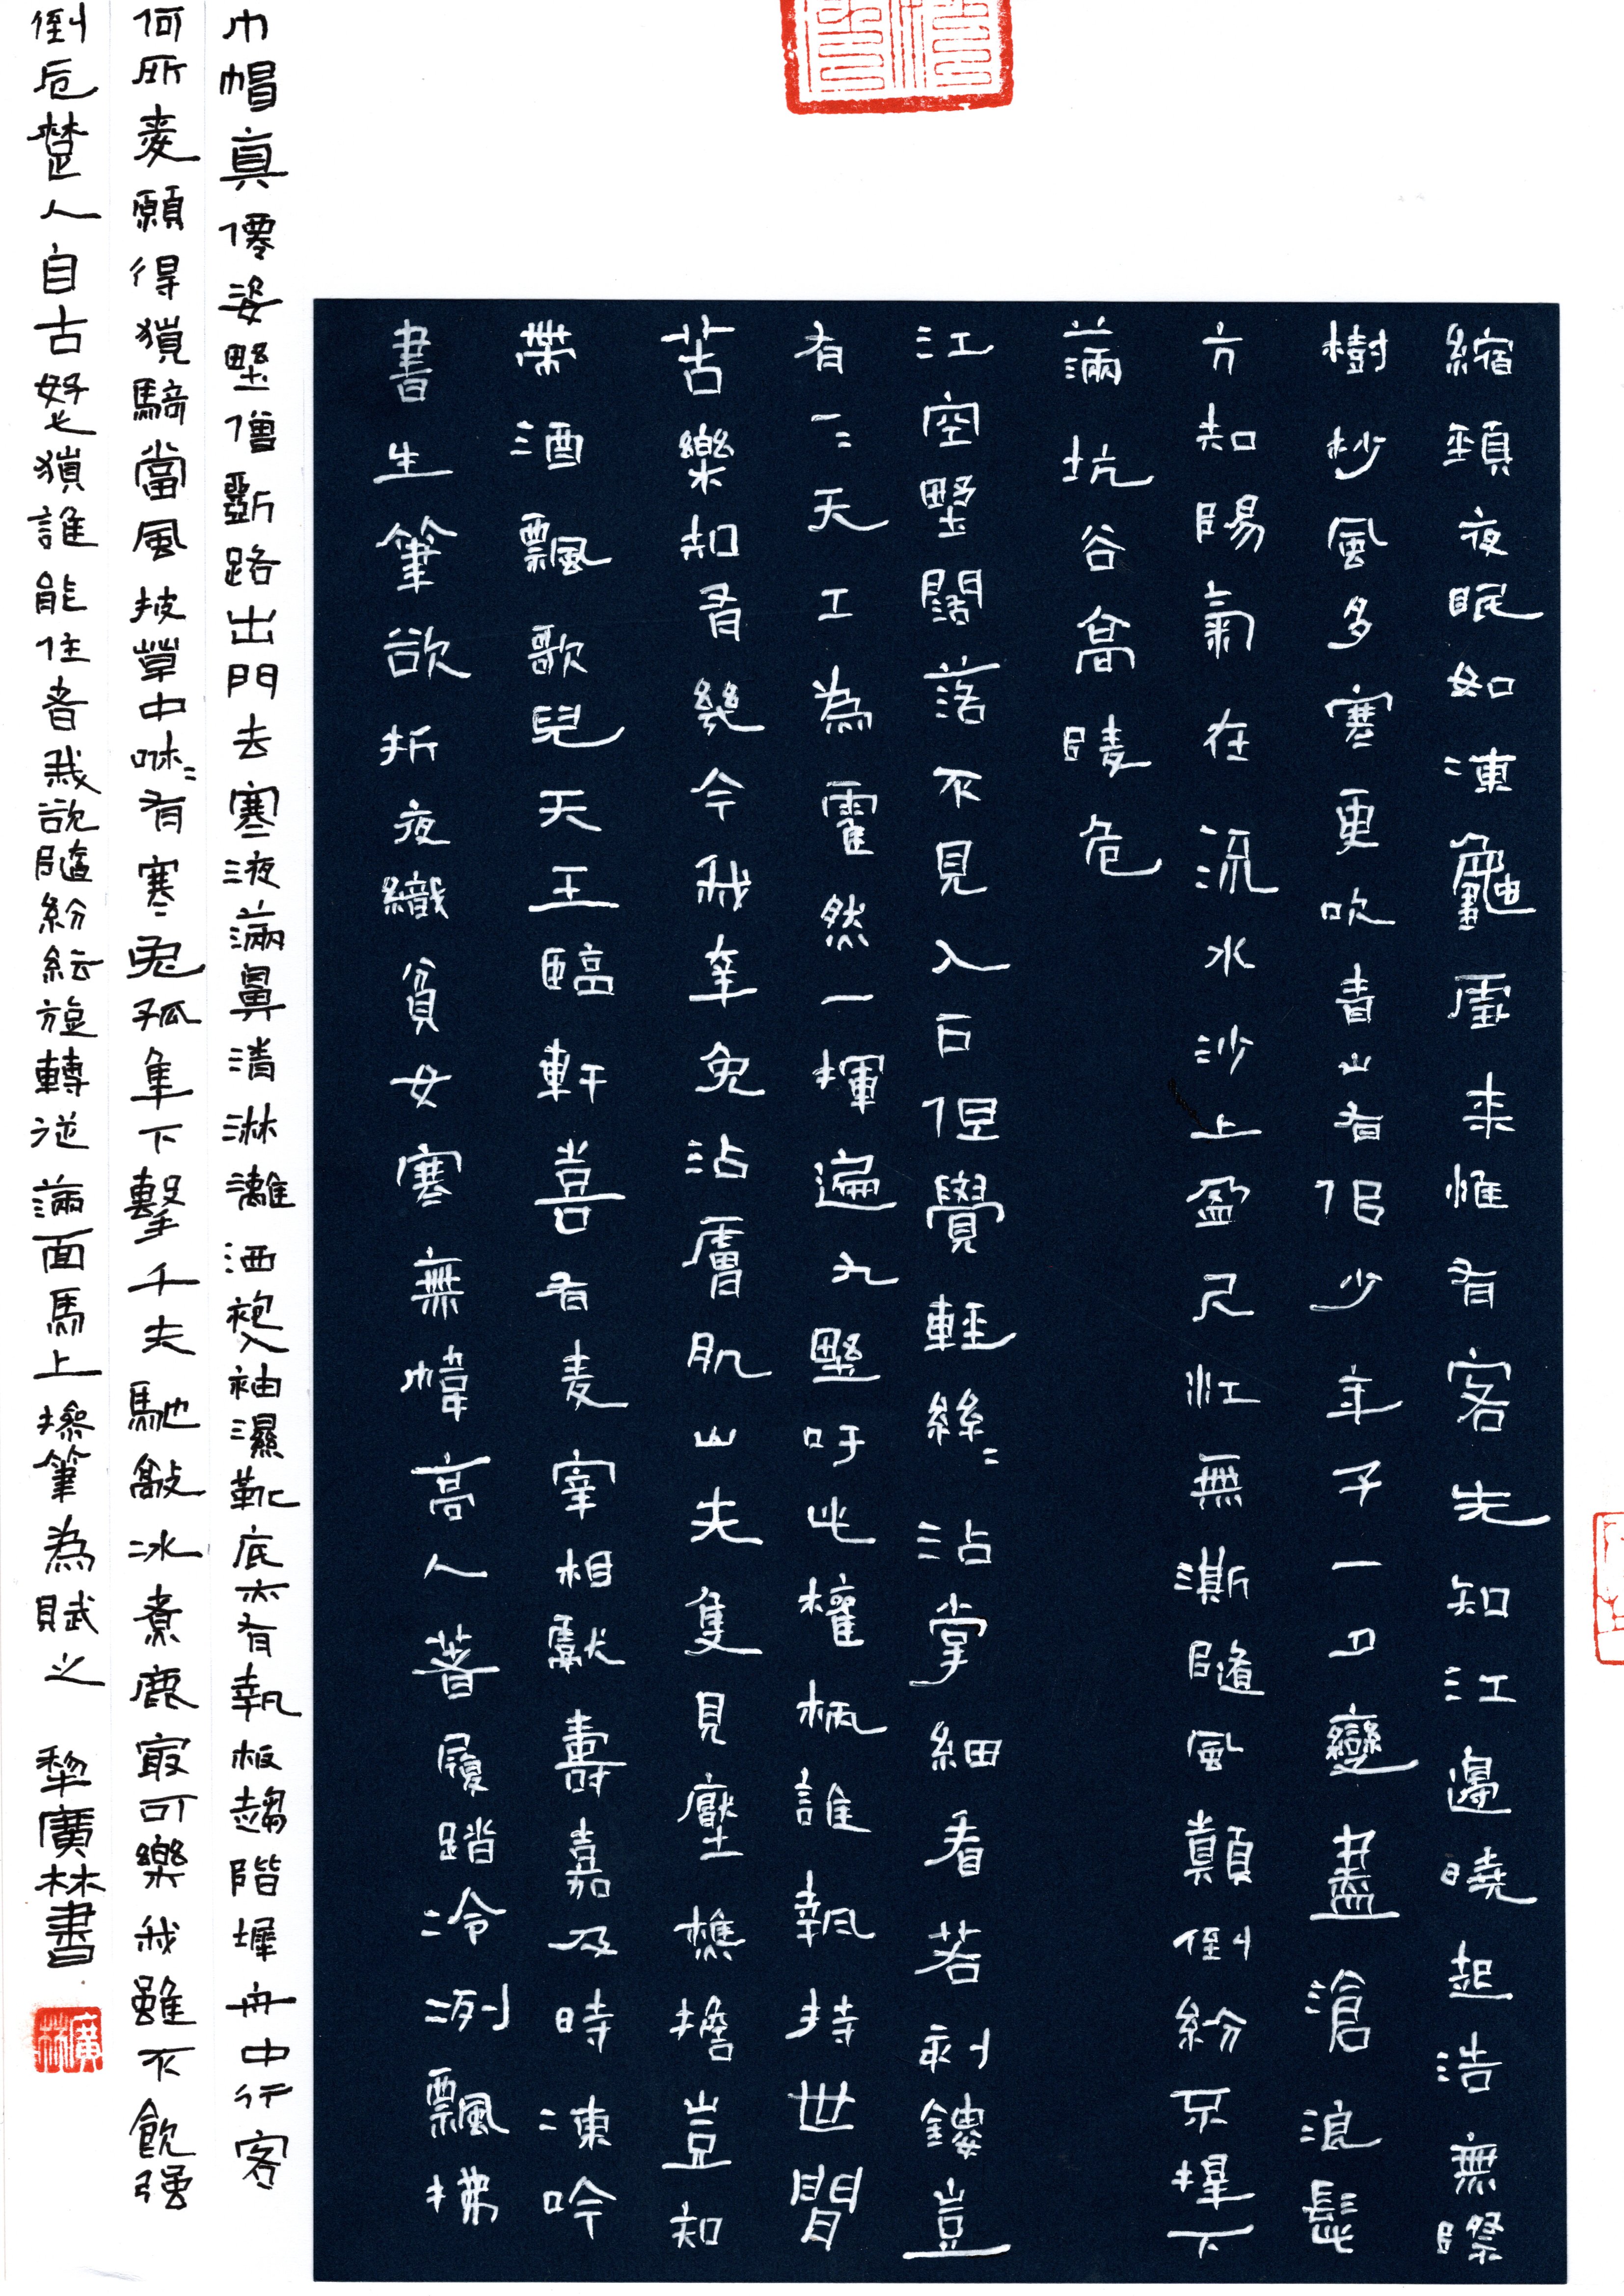 縮頸夜眠如凍龜雪来惟有客先知江邊曉起浩無際
樹杪風多寒更吹青山有佀少年子一夕變盡滄浪髭
方知陽氣在流水沙上盈尺江無澌隨風顛倒紛不擇下
滿坑谷高陵危
江空野闊落不見入戶但覺輕絲〻沾掌細看若刻鏤豈
有一〻天工為霍然一揮遍九野吁此權柄誰執持世間
苦樂知有幾今我幸免沾膚肌山夫隻見壓樵擔豈知
帶酒飄歌兒天王臨軒喜有麦宰相獻壽嘉及時凍吟
書生筆欲折夜織貧女寒無幃高人著履踏冷冽飄拂
巾帽真僊姿野僧斲路出門去寒液滿鼻清淋漓洒袍入袖濕靴底亦有執板趨階墀舟中行客
何所愛願得獵騎當風披草中咻〻有寒兔孤隼下擊千夫馳敲冰煮鹿最可樂我雖不飲强
倒卮楚人自古好弋獵誰能往者我欲隨紛紜旋轉從滿面馬上操筆為賦之 犂廣林書
廣林